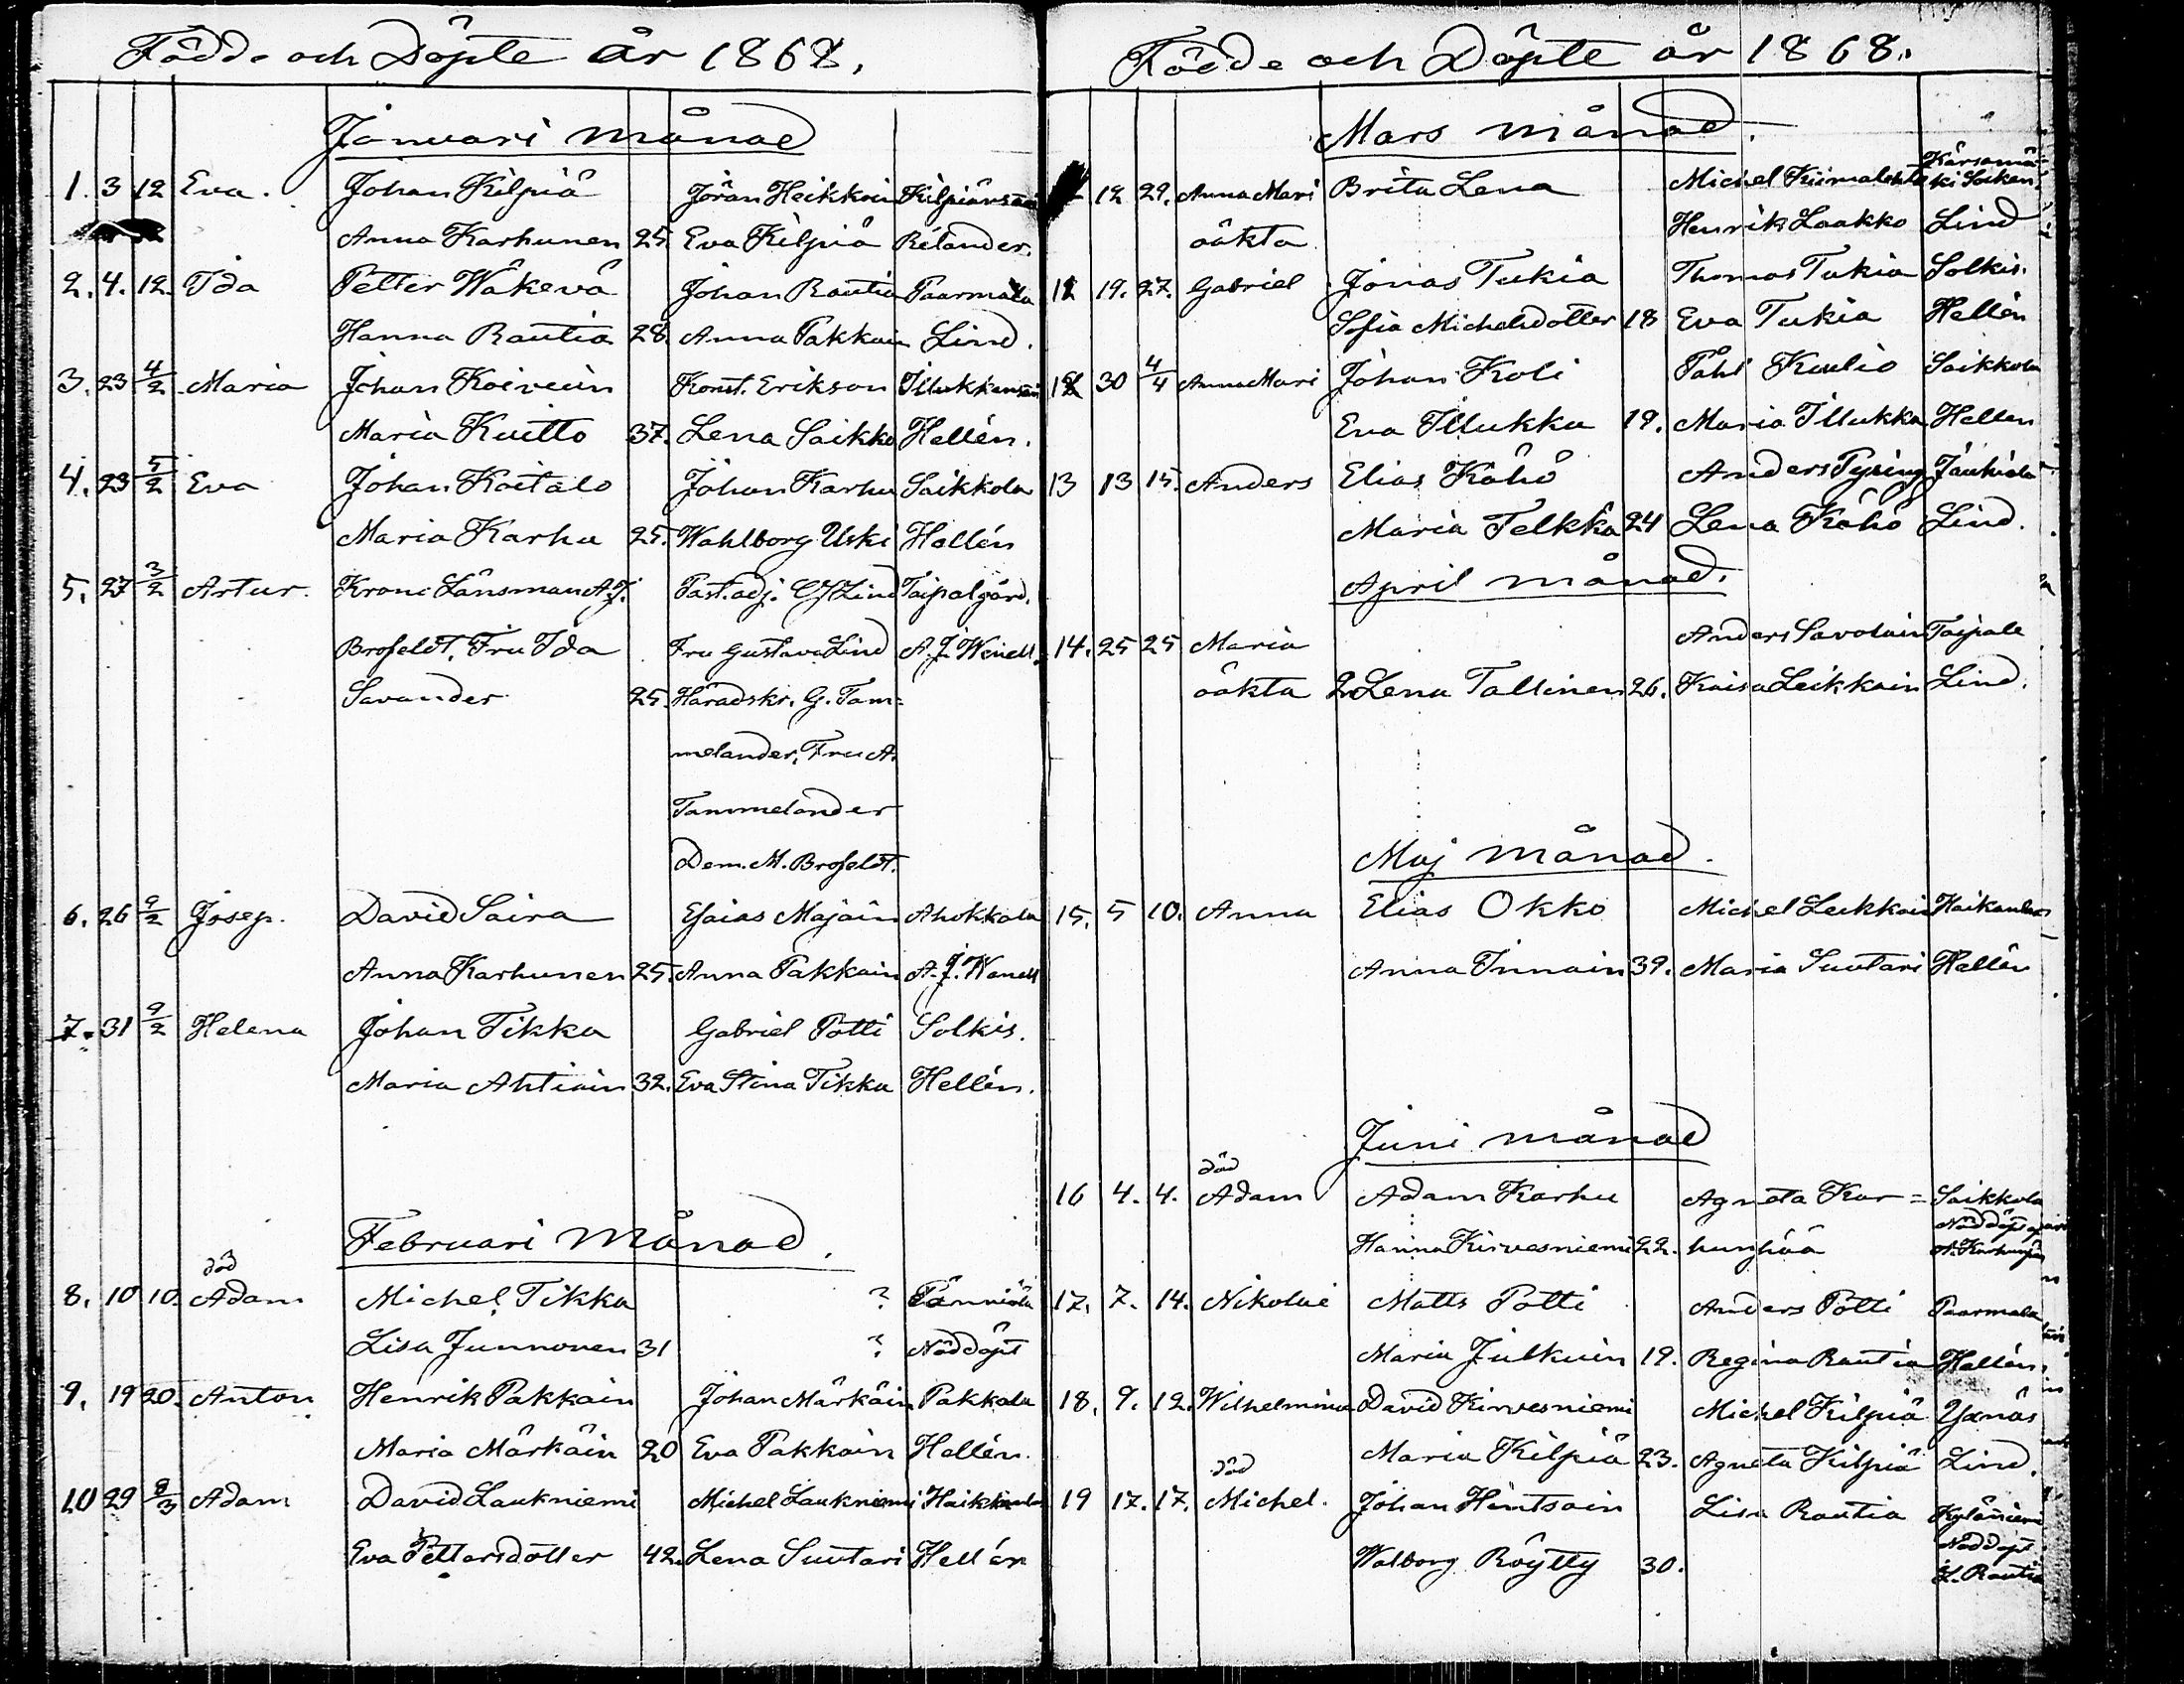 Födde och Döpte år 1868.
Januari månad
1. 3 12 Eva. Johan Kilpiä Jöran Heikkoin Kilpiänsaari
Anna Karhunen 25 Eva Kilpiä Relander.
2. 4. 12. Ida Petter Wäkevä Johan Rautia Paarmala
Hanna Rautia 28 Anna Pakkain Lind.
3. 23 4/2 Maria Johan Koivuin Konst. Erikson Illukkansaari
Maria Kuitto 37. Lena Saikko Hellén.
4. 23 5/2 Eva Johan Koitalo Johan Karhu Saikkola
Maria Karhu 25. Wahlborg Uski Hellén
5. 27 3/2 Artur. Krono Länsman A.J. Past. adj. CJ Lind Taipal gård.
Brofeldt, Fru Ida Fru Gustava Lind A. J. Winell.
Savander 25. Häradskr. G. Tam=
melander, Fru A.
Tammelander
Dem. M. Brofeldt.
6. 26 9/2 Josep. David Saira Esaias Majäin Ahokkala
Anna Karhunen 25. Anna Pakkain A. J. Wenell
7. 31 9/2 Helena Johan Tikka Gabriel Potti Solkis.
Maria Ahtiain 32. Eva Stina Tikka Hellén.
Februari Månad.
död
8. 10 10. Adam Michel Tikka ? Pänniälä
Lisa Junnonen 31 ? Nöddöpt
9. 19 20. Anton Henrik Pakkain Johan Märkäin Pakkala
Maria Märkäin 20 Eva Pakkain Hellén.
10 29 9/3 Adam David Laukniemi Michel Laukniemi
Eva Pettersdotter 42. Lena Suutari Hellén
Födde och Döpte år 1868.
Mars månad.
Kärsämä=
12 29. Anna Mari Brita Lena Michel ki Socken
oäkta Henrik Laakko Lind
19. 27. Gabriel Jonas Tukia Thomas Tukia Solkis.
Sofia Michelsdotter 18 Eva Tukia Hellén
30 4/4 Anna Mari Johan Koli Påhl Kaulio Saikkola
Eva Illukka 19. Maria Illukka Hellen
13 13 15. Anders Elias Köhö Anders Pysing Jauhiala
Maria Telkkä 24 Lena Köhö Lind.
April månad.
14. 25 25 Maria Anders Savolain Taipale
oäkta 2. Lena Tallinen 26. Kaisa Leikkain Lind.
Maj månad.
15. 5 10. Anna Elias Okko Michel Leikkain
Anna Innain 39. Maria Suutari Hellén
Juni månad
död
16 4. 4. Adam Adam Karhu Agneta Kar= Saikkola
Hanna Kirvesniemi 22. hunpää Nöddöpt af A. Karhunpää
17. 7. 14. Nikolai Matts Potti Anders Potti Paarmala
Maria Julkuin 19. Regina Rautia Hellén.
18. 9. 12. Wilhelmina David Kirvesniemi Michel Kilpiä Yxnäs
Maria Kilpiä 23. Agneta Kilpiä Lind.
död
19 17. 17. Michel. Johan Hintsain Lisa Rautia Kyläniemi
Walborg Röytty 30. Nöddöpt
L. Rautia